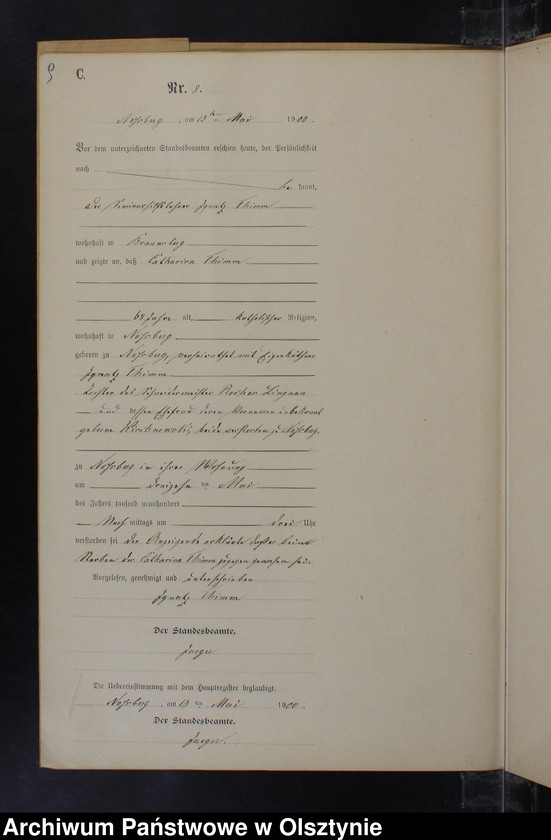 C.
Nr. 8.
am 13ten Mai 1900.
Vor dem unterzeichneten Standesbeamten erschien heute, der Persönlichkeit
nach
be kannt,
der Ignatz Thimm
wohnhaft in Braunsberg
und zeigte an, daß Catharina Thimm
68 Jahre alt, katholischer Religion,
wohnhaft in
geboren zu verheirathet mit Eigenkäthner
Ignatz Thimm
Tochter des Schneidermeister
und dessen Ehefrau deren Vornamen unbekannt
geborne beide verstorben zu
zu in ihrer Wohnung
am dreizehn ten Mai
des Jahres tausend neunhundert
Nach mittags um drei Uhr
verstorben sei der Anzeigende erklärte daß er beim
Sterben der Catharina Thimm zugegen gewesen sei.
Vorgelesen, genehmigt und unterschrieben
Ignatz Thimm
Der Standesbeamte.
Jaeger
Die Uebereinstimmung mit dem Hauptregister beglaubigt.
am 13 ten Mai 1900.
Der Standesbeamte.
Jaeger.
Archiwum Państwowe w Olsztynie